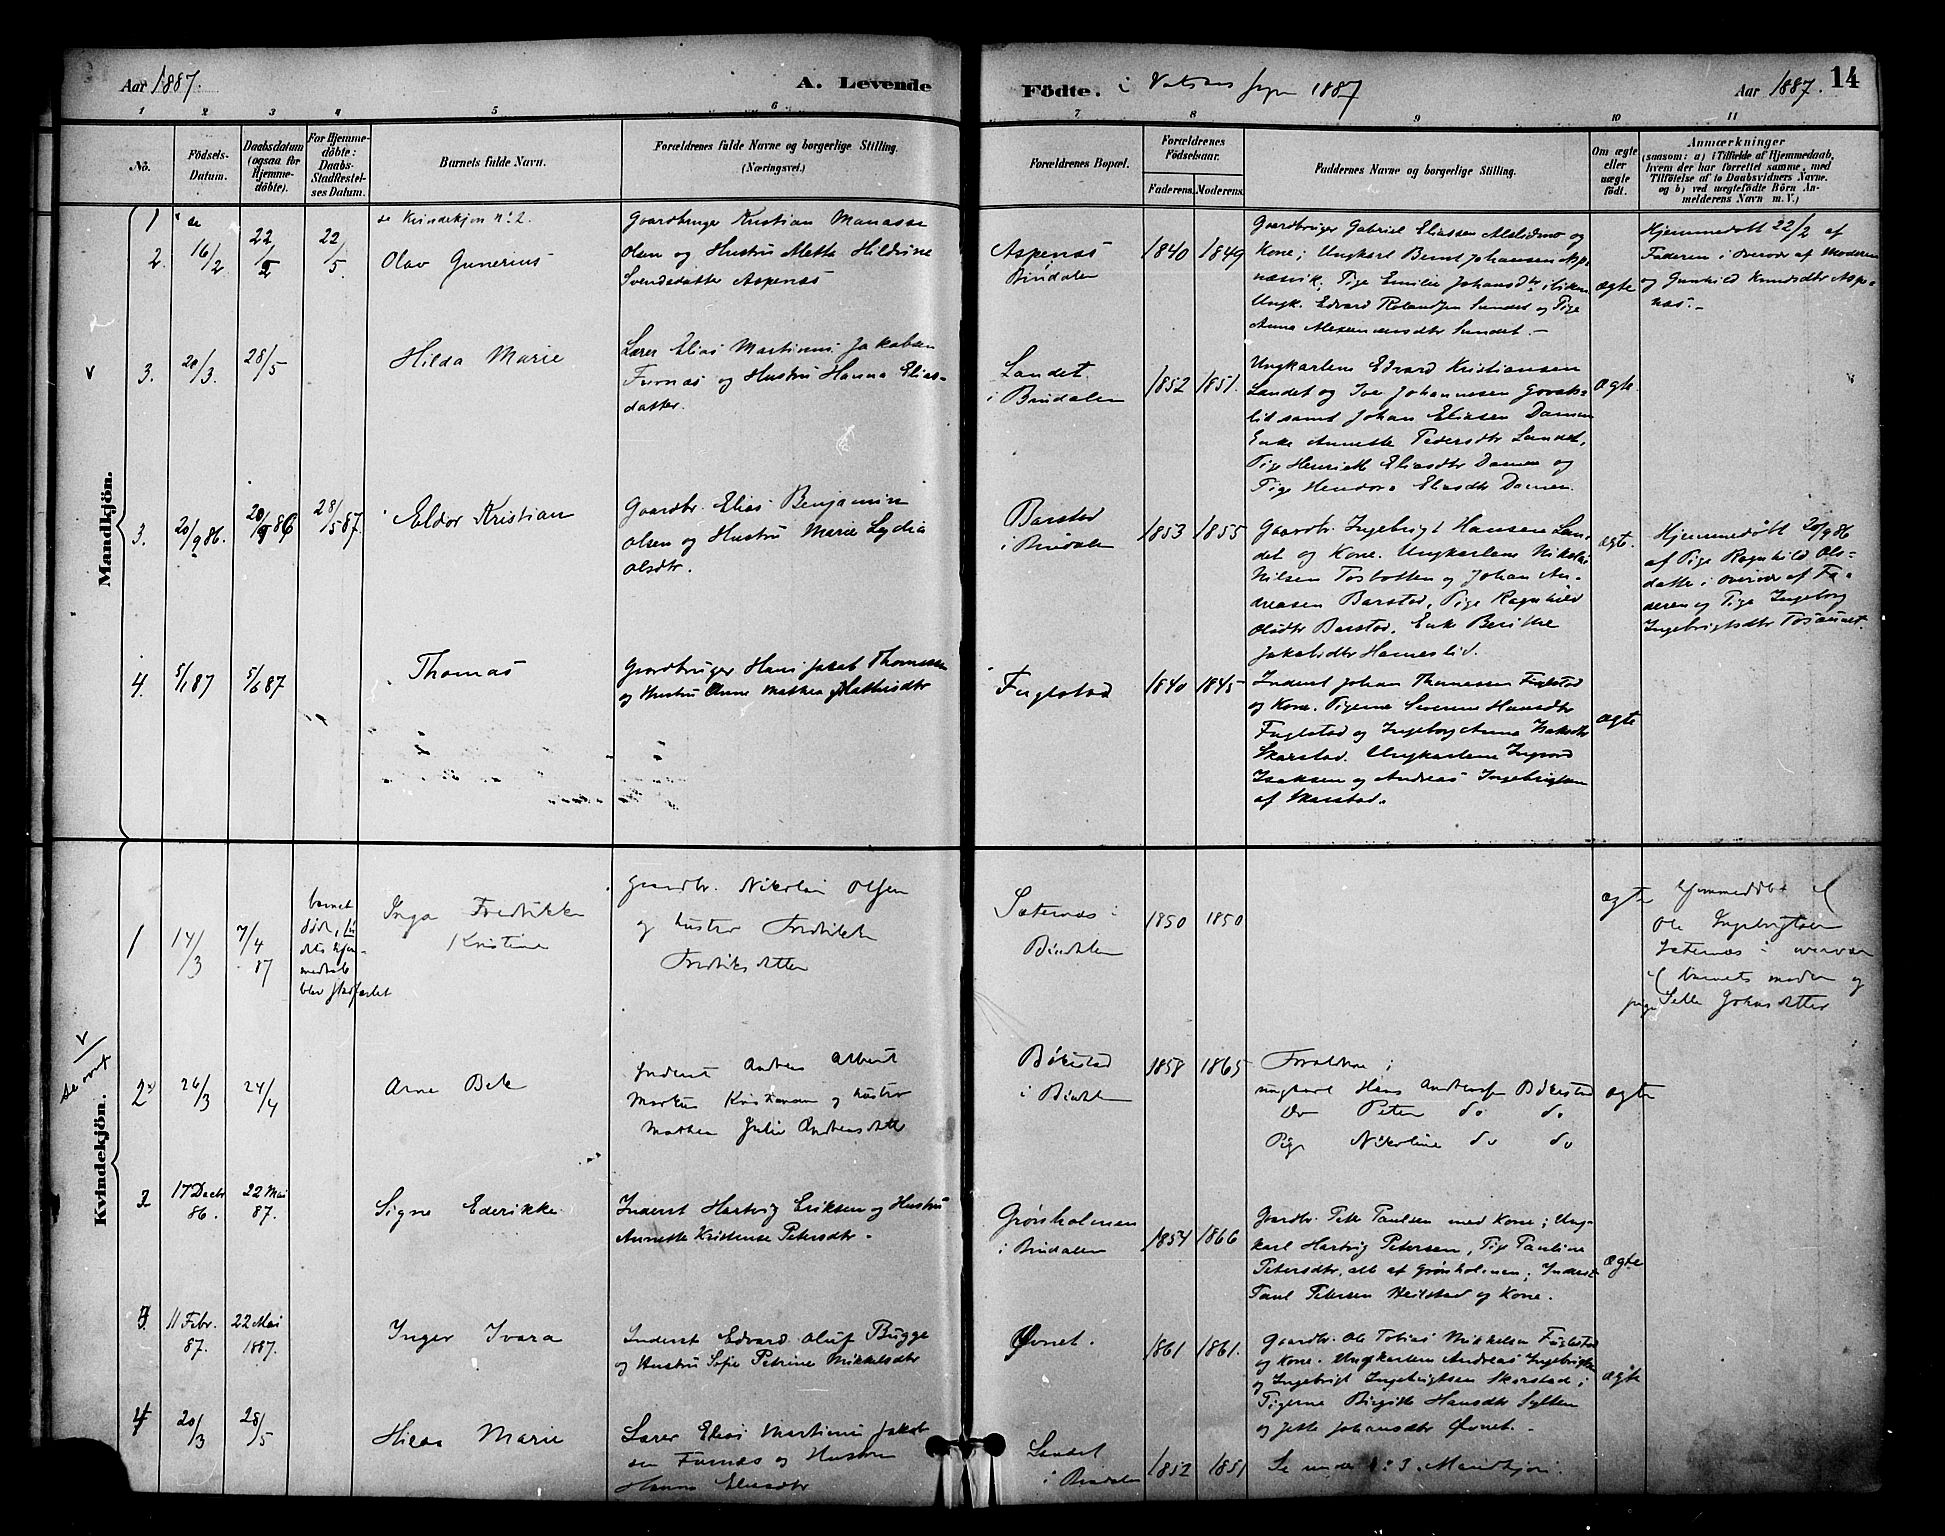 Aar 1887.
A. Levende
Födte. i sogn 1887
Aar 1887. 14
1 2 3 4 5 6 7 8 9 10 11
No.
Födsels-Datum.
Daabsdatum (ogsaa for Hjemmedöbte).
For Hjemmedöbte: Daabs-Stadfæstelses Datum.
Barnets fulde Navn.
Forældrenes fulde Navne og borgerlige Stilling. (Næringsvei.)
Forældrenes Bopæl.
Forældrenes Födselsaar.
Faderens. Moderens.
Faddernes Navne og borgerlige Stilling.
Om ægte eller uægte födt.
Anmærkninger
(saasom: a) i Tilfælde af Hjemmedaab, hvem der har forrettet samme, med Tilföielse af to Daabsvidners Navne, og b) ved uægtefödte Börn Anmelderens Navn m. V.)
Mandkjön.
1 se
se Kvindekjøn No 2.
2. 16/2 22/2 22/5. Olav Gunerius
Gaardbruger Kristian Manasse
Olsen og Hustru Metta Hildrine
Svendsdatter Aspenæs
Aspenæs
Bindalen
1840 1849
Gaardbruger Gabriel Eliassen og
Kone; Ungkarl Bernt Johansen Asp-
næsvik; Pige Emilie Johansdtr
Ungk. Edvard Sundet og Pige
Anna Sundet.
ægte
Hjemmedøbt 22/2 af
Faderen i overvær af Moderen
og Gunhild Knudsdtr Aspe-
næs.
3. 20/3. 28/5 Hilda Marie
Lærer Elias Martinus Jakobsen
Furnæs og Hustru Hanna Elias-
datter.
Landet
i Bindalen
1852 1851.
Ungkarlene Edvard Kristiansen
Landet og Ivar Johannesen
samt Johan Eliasen
Enke Annette Pedersdtr Landet,
Pige Henriette Eliasdtr og
Pige Eliasdtr
ægte.
3. 20/9 86. 20/9 86 28/5 87. Eldor Kristian
Gaardbr. Elias Benjamin
Olsen og Hustru Marie Lydia
Olsdtr.
Barstad
i Bindalen
1853 1855
Gaardbr. Ingebrigt Hansen Lan-
det og Kone. Ungkarlene Nikolai
Nilsen Tosbotten og Johan An-
dreasen Barstad, Pige Ragnhild
Olsdtr Barstad, Enke Berithe
Jakobsdtr
ægte.
Hjemmedøbt 20/9 86
af Pige Ragnhild Ols-
datter i overvær af Fa-
deren og Pige Ingeborg
Ingebrigtsdtr
4. 5/1 87 5/6 87 Thomas
Gaardbruger Hans Jakob Thomassen
og Hustru Anne Mathea
Fuglstad
1840 1845
Inderst Johan Thomassen Fuglstad
og Kone. Pigerne Severine Hansdtr
Fuglstad og Ingeborg Anna Isaksdtr
Skarstad. Ungkarlene Ingvard
Isaksen og Andreas Ingebrigtsen
af Skarstad.
ægte
Kvindekjön.
se ovnt
1 14/3 7/4 87
barnet
døde,
blev stadfæstet
Inga Fredrikke
Kristine
Gaardbr. Nikolai Olsen
og hustro Fredrikke
Fredriksdatter
Sæternæs i
Bindalen
1850 1850
ægte
Hjemmedøbt af
Ole Ingebrigtsen
Sæternæs i overvær
af barnets moder og
pige Johnsdatter
2 26/3 24/4 Arne
Inderst Andreas Albert
Markus Kristiansen og hustro
Mathea Julie Andreasdatter
Bøkestad
i Bindalen
1858 1865
Forældrene;
ungkarl Hans Andersen Bøkestad
Peter do do
Pige Nikoline do do
ægte
2 17 Decbr 86. 22 Mai 87. Signe Ederikke
Inderst Hartvig Eriksen og Hustru
Annette Kristense Petersdtr.
Grønholmen
i Bindalen
1854 1866
Gaardbr. Peter Paulsen med Kone; Ung-
karl Hartvig Petersen, Pige Pauline
Petersdtr, alle af Grønholmen; Inderst
Paul Petersen Heilstad og Kone.
ægte
3. 11 Febr. 87. 22 Mai 1887. Inger Ivara
Inderst Edvard Oluf Bugge
og Hustru Sofie Petrine Mikkelsdtr
Øvnet.
1861 1861.
Gaardbr. Ole Tobias Mikkelsen Fuglstad
og Kone. Ungkarlene Andreas Ingebrigtsen
og Ingebrigt Ingebrigtsen Skarstad;
Pigerne Birgitte Hansdtr Sylten
og Jette Johansdtr Øvnet.
ægte
4 20/3 28/5 Hilda Marie
Lærer Elias Martinus Jakob-
sen Furnæs og Hustru
Hanna Eliasdtr
Landet
i Bindalen
1852 1851
Se under No 3. Mandkjøn.